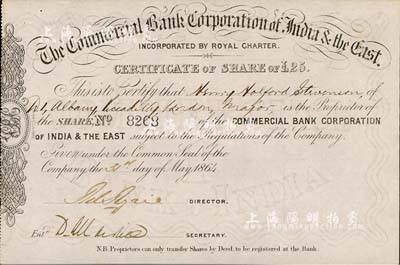 The Commercial Bank Corporation of India & the East.
INCORPORATED BY ROYAL CHARTER.
CERTIFICATE OF SHARE OF £25.
This is to Certify that Henry Holford Stevenson, of
Albany London, Major, is the Proprietor of
the SHARE, No 8268 of the COMMERCIAL BANK CORPORATION
OF INDIA & THE EAST subject to the Regulations of the Company.
Given under the Common Seal of the
Company the day of May 1864
DIRECTOR.
Entd
SECRETARY.
N.B. Proprietors can only transfer Shares by Deed, to be registered at the Bank.